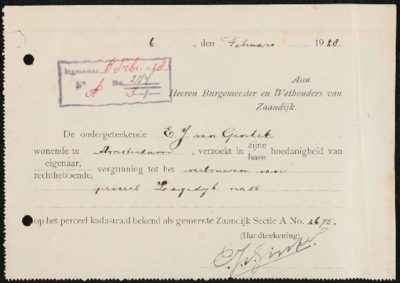 6, den Februari 1928.
Ingekomen 8 Febr. 28
No. 274
A
Aan
Heeren Burgemeester en Wethouders van
Zaandijk.
De ondergeteekende E J van Gentek
wonende te Amsterdam, verzoekt in zijne hoedanigheid van
hare
eigenaar,
rechthebbende, vergunning tot het verbouwen van
perceel Lagedijk
op het perceel kadastraal bekend als gemeente Zaandijk Sectie A No. 2675.
(Handteekening)